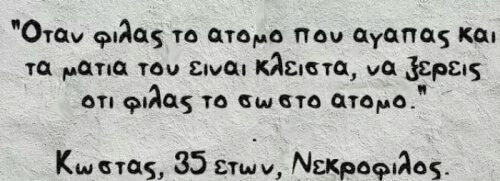 "Οταν φιλας το ατομο που αγαπας και
τα ματια του ειναι κλειστα, να ξερεις
οτι φιλας το σωστο ατομο."
Κωστας, 35 ετων, Νεκροφιλος.